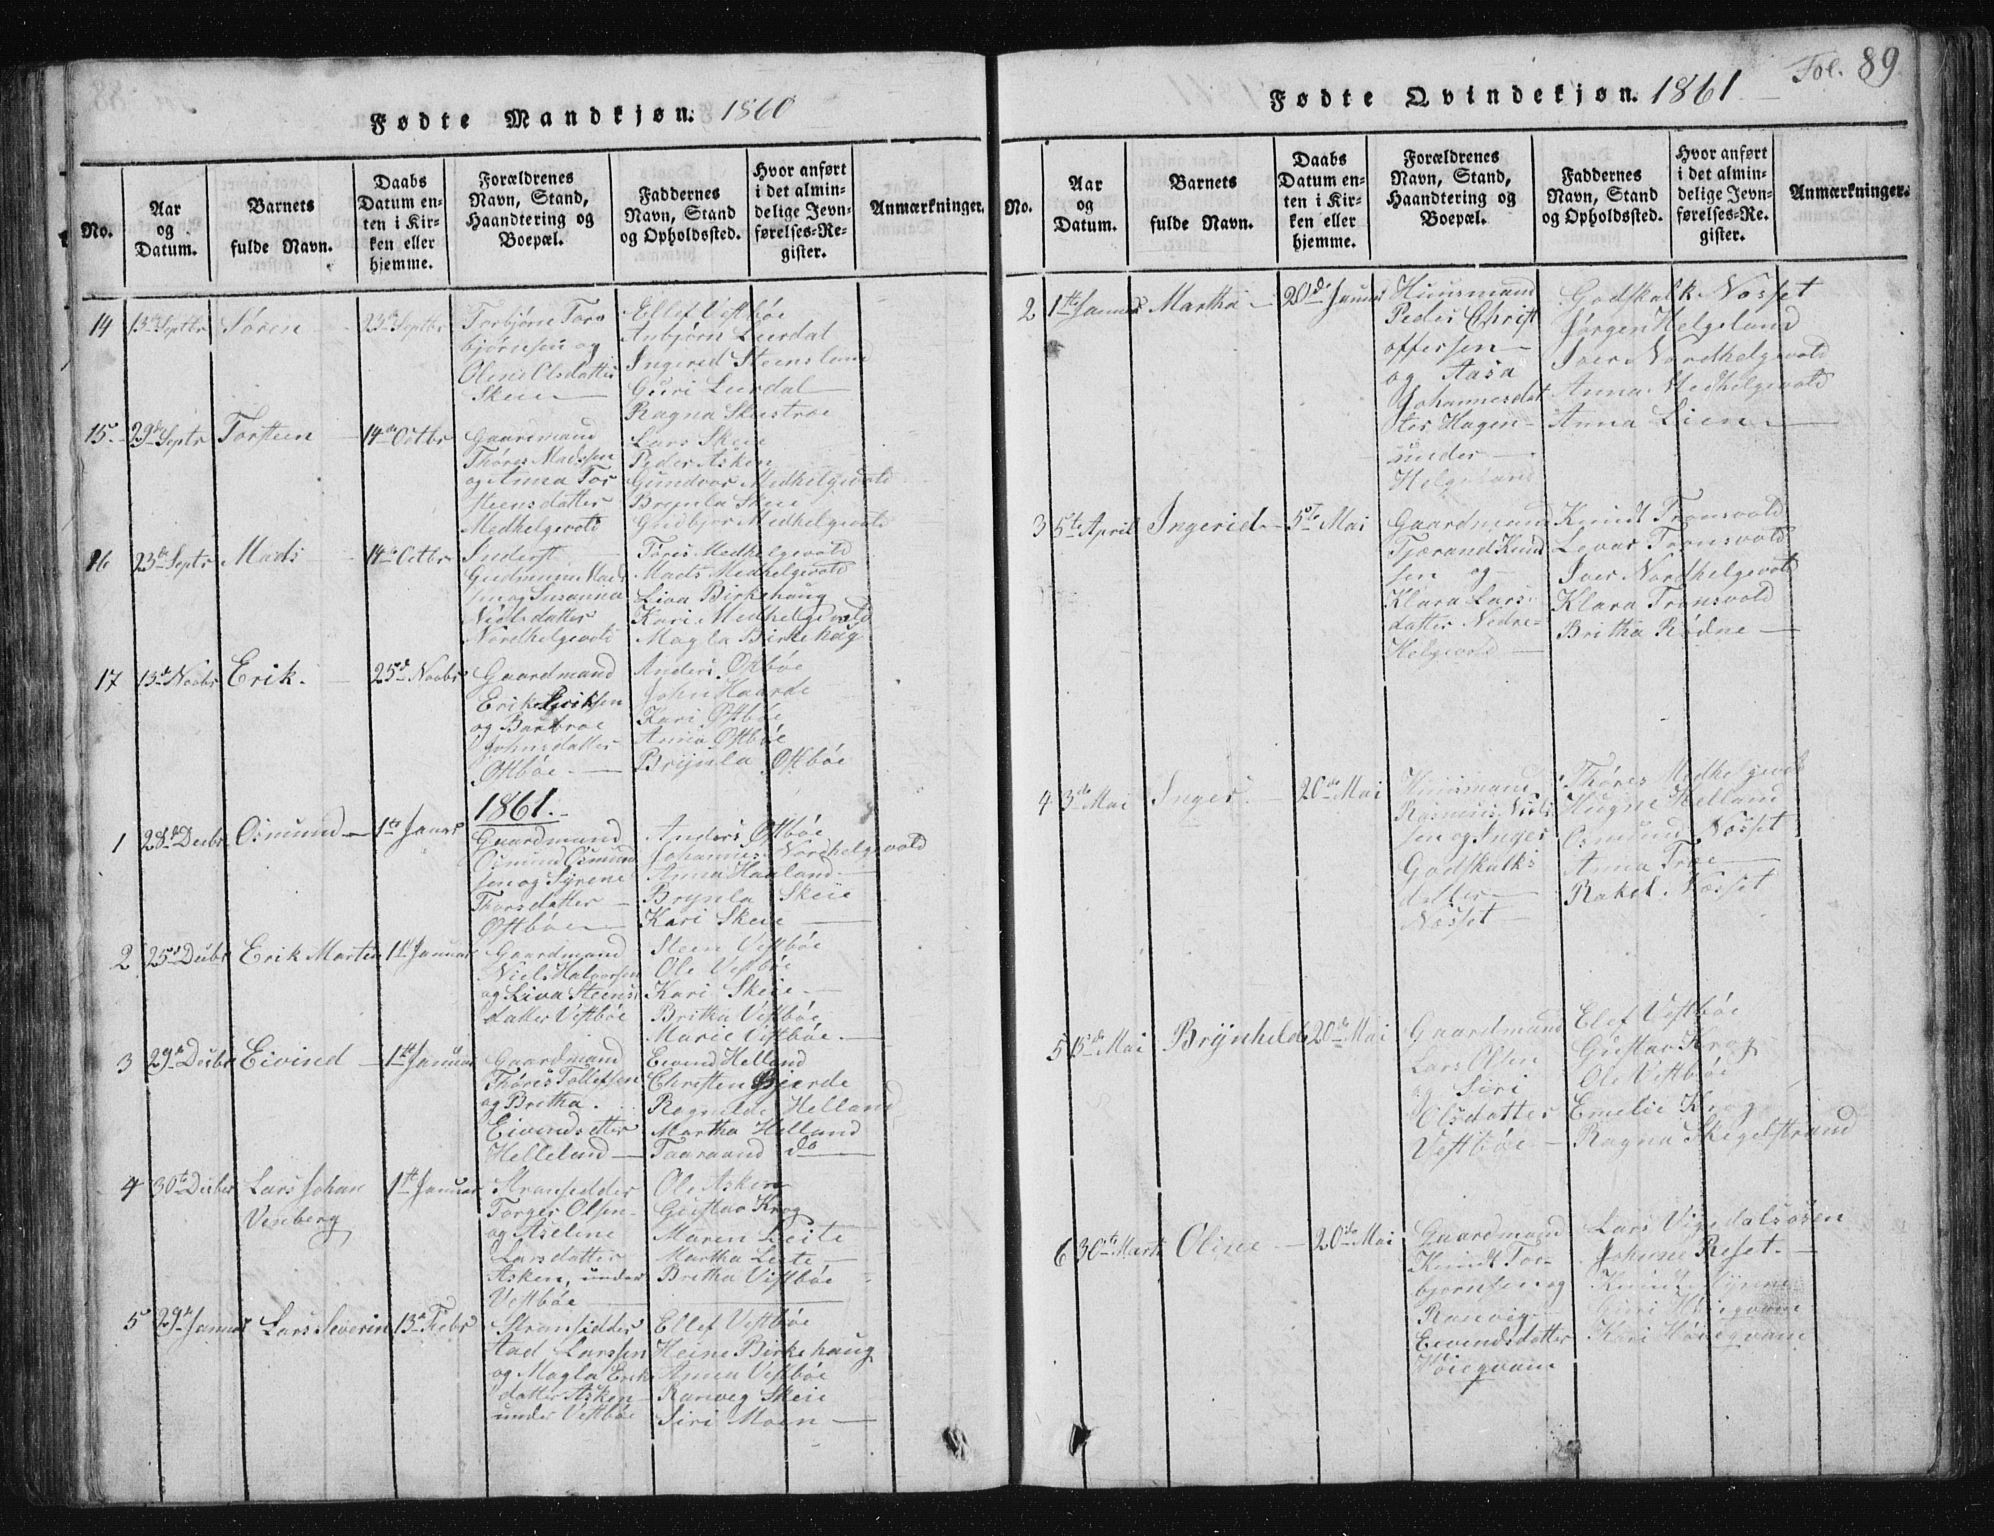 Fødte Mandkjøn. 1860
No.
Aar og Datum.
Barnets fulde Navn.
Daabs Datum enten i Kirken eller hjemme.
Forældrenes Navn, Stand, Haandtering og Boepæl.
Faddernes Navn, Stand og Opholdssted.
Hvor anført i det almindelige Jevnførelses-Register.
Anmærkninger.
14 13de Septbr Søren 23de Septbr
Torbjørn Tor
bjørnsen og
Olene Olsdatter
Skeie
Ellef Vestbøe
Anbjørn Lerdal
Ingered Steensland
Guri Lerdal
Ragna Skastroe
15. 29de Septr Torsteen 14de Octbr
Gaardmand
Thøres Madssen
og Anna Tor
steensdatter
Medhelgevold
Lars Skeie
Peder Asken
Gundvor Medhelgevold
Brynla Skeie
Gudbjør Medhelgevold
16 23de Septr Mads 14de Octbr
Inderst
Gudmund Mad
sen og Susanna
Nielsdatter
Nordhelgevold
Tøres Medhelgevold
Mads Medhelgevold
Liva Birkehaug
Kari Medhelgevold
Magla Birkehaug
17 13de Novbr Erik 25de Novbr
Gaardmand
Erik Eriksen
og Barbroe
Johnsdatter
Østbøe
Anders Østbøe
John Haarde
Kari Østbøe
Anna Østbøe
Brynla Østbøe
1861.
1 28de Decbr Osmund 1ste Januar
Gaardmand
Osmund Osmund
sen og Syrene
Thorsdatter
Østbøe
Anders Østbøe
Johannes Nordhelgevold
Anna Haaland
Brynla Skeie
Kari Skeie
2 25de Decbr Erik Martin 1ste Januar
Gaardmand
Niels Halvorsen
og Liva Steens
datter Vestbøe
Steen Vestbøe
Ole Vestbøe
Kari Skeie
Britha Vestbøe
Marie Vestbøe
3 29de Decbr Eivind 1ste Januar
Gaardmand
Thøres Tollefsen
og Bretha
Eivindsdatter
Helleland
Eivend Helland
Christen Gjerde
Ragnilde Helland
Martha Helland
Taaraand do
4 30te Decbr Lars Johan 1ste Januar
Venberg
Stransidder
Torger Olsen
og Aselene
Larsdatter
Asken, under
Vestbøe
Ole Asken
Gustav Krog
Maren Leite
Martha Leite
Bretha Vestbøe
5 29de Januar Lars Severin 13de Febr
Stransidder
Aad Larssen
og Magla Erik
datter Asken
under Vestbøe
Ellef Vestbøe
Heine Birkehaug
Anna Vestbøe
Ranveg Skeie
Siri Moen
Fødte Qvindekjøn. 1861
Fol. 89
No.
Aar og Datum.
Barnets fulde Navn.
Daabs Datum enten i Kirken eller hjemme.
Forældrenes Navn, Stand, Haandtering og Boepæl.
Faddernes Navn, Stand og Opholdssted.
Hvor anført i det almindelige Jevnførelses-Register.
Anmærkninger.
2 1ste Januar Martha 20de Januar
Huusmand
Peder Christ
offersen
og Aasa
Johannesdat
ter Hagen
under
Helgeland
Godskalk Nosset
Jørgen Helgeland
Iver Nordhelgevold
Anna Medhelgevold
Anna Lien
3 5te April Ingerid 5te Mai
Gaardmand
Tjærand Knud
sen og
Klara Lars
datter Nedre
Helgevold
Knudt Tronsvold
Levar Tronsvold
Iver Nordhelgevold
Klara Tronsvold
Britha Rødne
4 3de Mai Inger 20de Mai
Huusmand
Rasmus Niels
sen og Inger
Godskalks
datter
Nosset
Thøres Medhelgevold
Haagne Helland
Osmund Nosset
Anna Troe
Rakel Nosset
5 15de Mai Brynhilde 20de Mai
Gaardmand
Lars Olsen
og Siri
Olsdatter
Vestbøe
Elef Vestbøe
Gustav Krog
Ole Vestbøe
Emelie Krog
Ragna Skigelstrand
6 30te Marts Oline 20de Mai
Gaardmand
Knudt Tor
bjørnsen og
Ranvig
Eivendsdatter
Høieqvam
Lars Vigedalsosen
Johanne Reset
Knudt
Guri Høieqvam
Kari Høieqvam